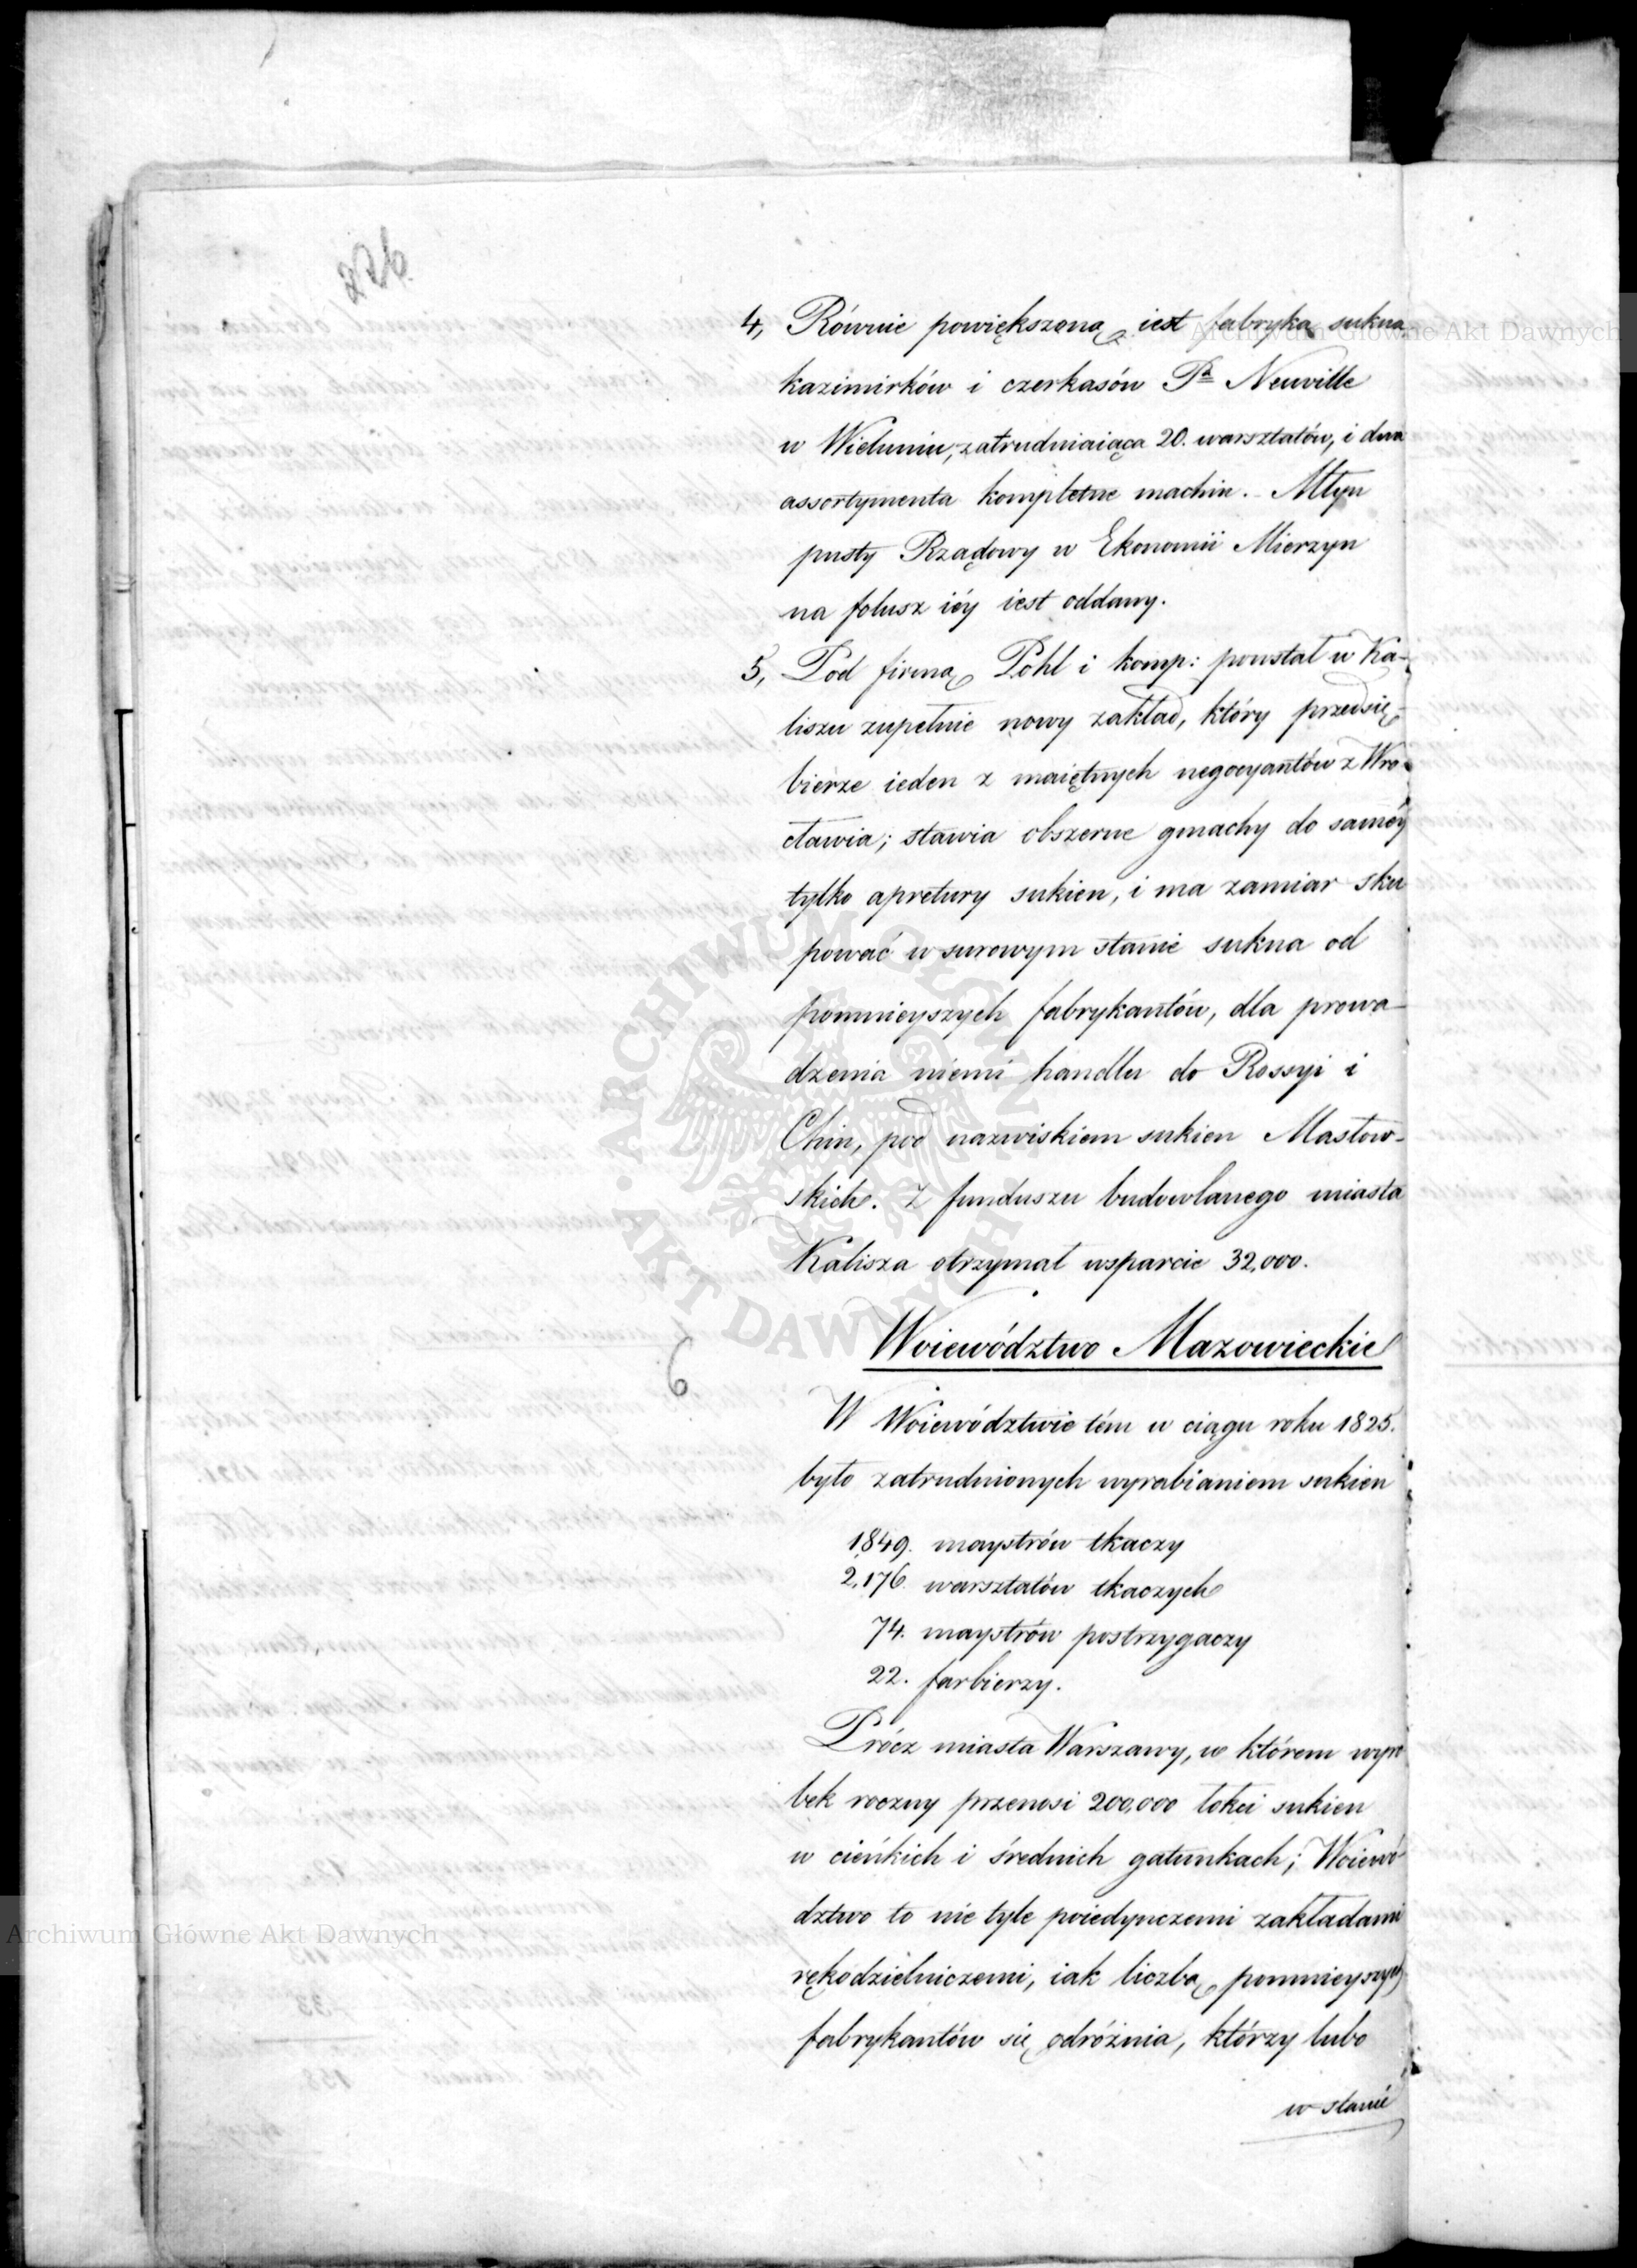 226.
4, Równie powiększoną iest fabryka sukna
kazimirków i czerkasów Pa Neuville
w Wieluniu, zatrudniaiąca 20. warsztatów, i dwa
assortymenta kompletne machin. Młyn
pusty Rządowy w Ekonomii Mierzyn
na folusz iéy iest oddany.
5, Pod firmą Pohl i komp: powstał w Ka-
liszu zupełnie nowy zakład, który przedsię-
bierze ieden z maiętnych negocyantów z Wro-
cławia; stawia obszerne gmachy do saméy
tylko apretury sukien, i ma zamiar sku
pować w surowym stanie sukna od
pomnieyszych fabrykantów, dla prowa-
dzenia niemi handlu do Rossyi i
Chin, pod nazwiskiem sukien Masłow-
skich. Z funduszu budowlanego miasta
Kalisza otrzymał wsparcie 32,000.
Woiewództwo Mazowieckie
6
W Woiewództwie tém w ciągu roku 1825.
było zatrudnionych wyrabianiem sukien
1,849. maystrów tkaczy
2,176. warsztatów tkaczych
74. maystrów postrzygaczy
22. farbierzy.
Prócz miasta Warszawy, w którem wyro
bek roczny przenosi 200,000 łokci sukien
w cieńkich i średnich gatunkach; Woiewó-
dztwo to nie tyle poiedynczemi zakładami
rękodzielniczemi, iak liczbą pomnieyszych
fabrykantów się odróżnia, którzy lubo
w stanie
Archiwum Główne Akt Dawnych
Archiwum Główne Akt Dawnych
ARCHIWUM GŁÓWNE · AKT DAWNYCH ·